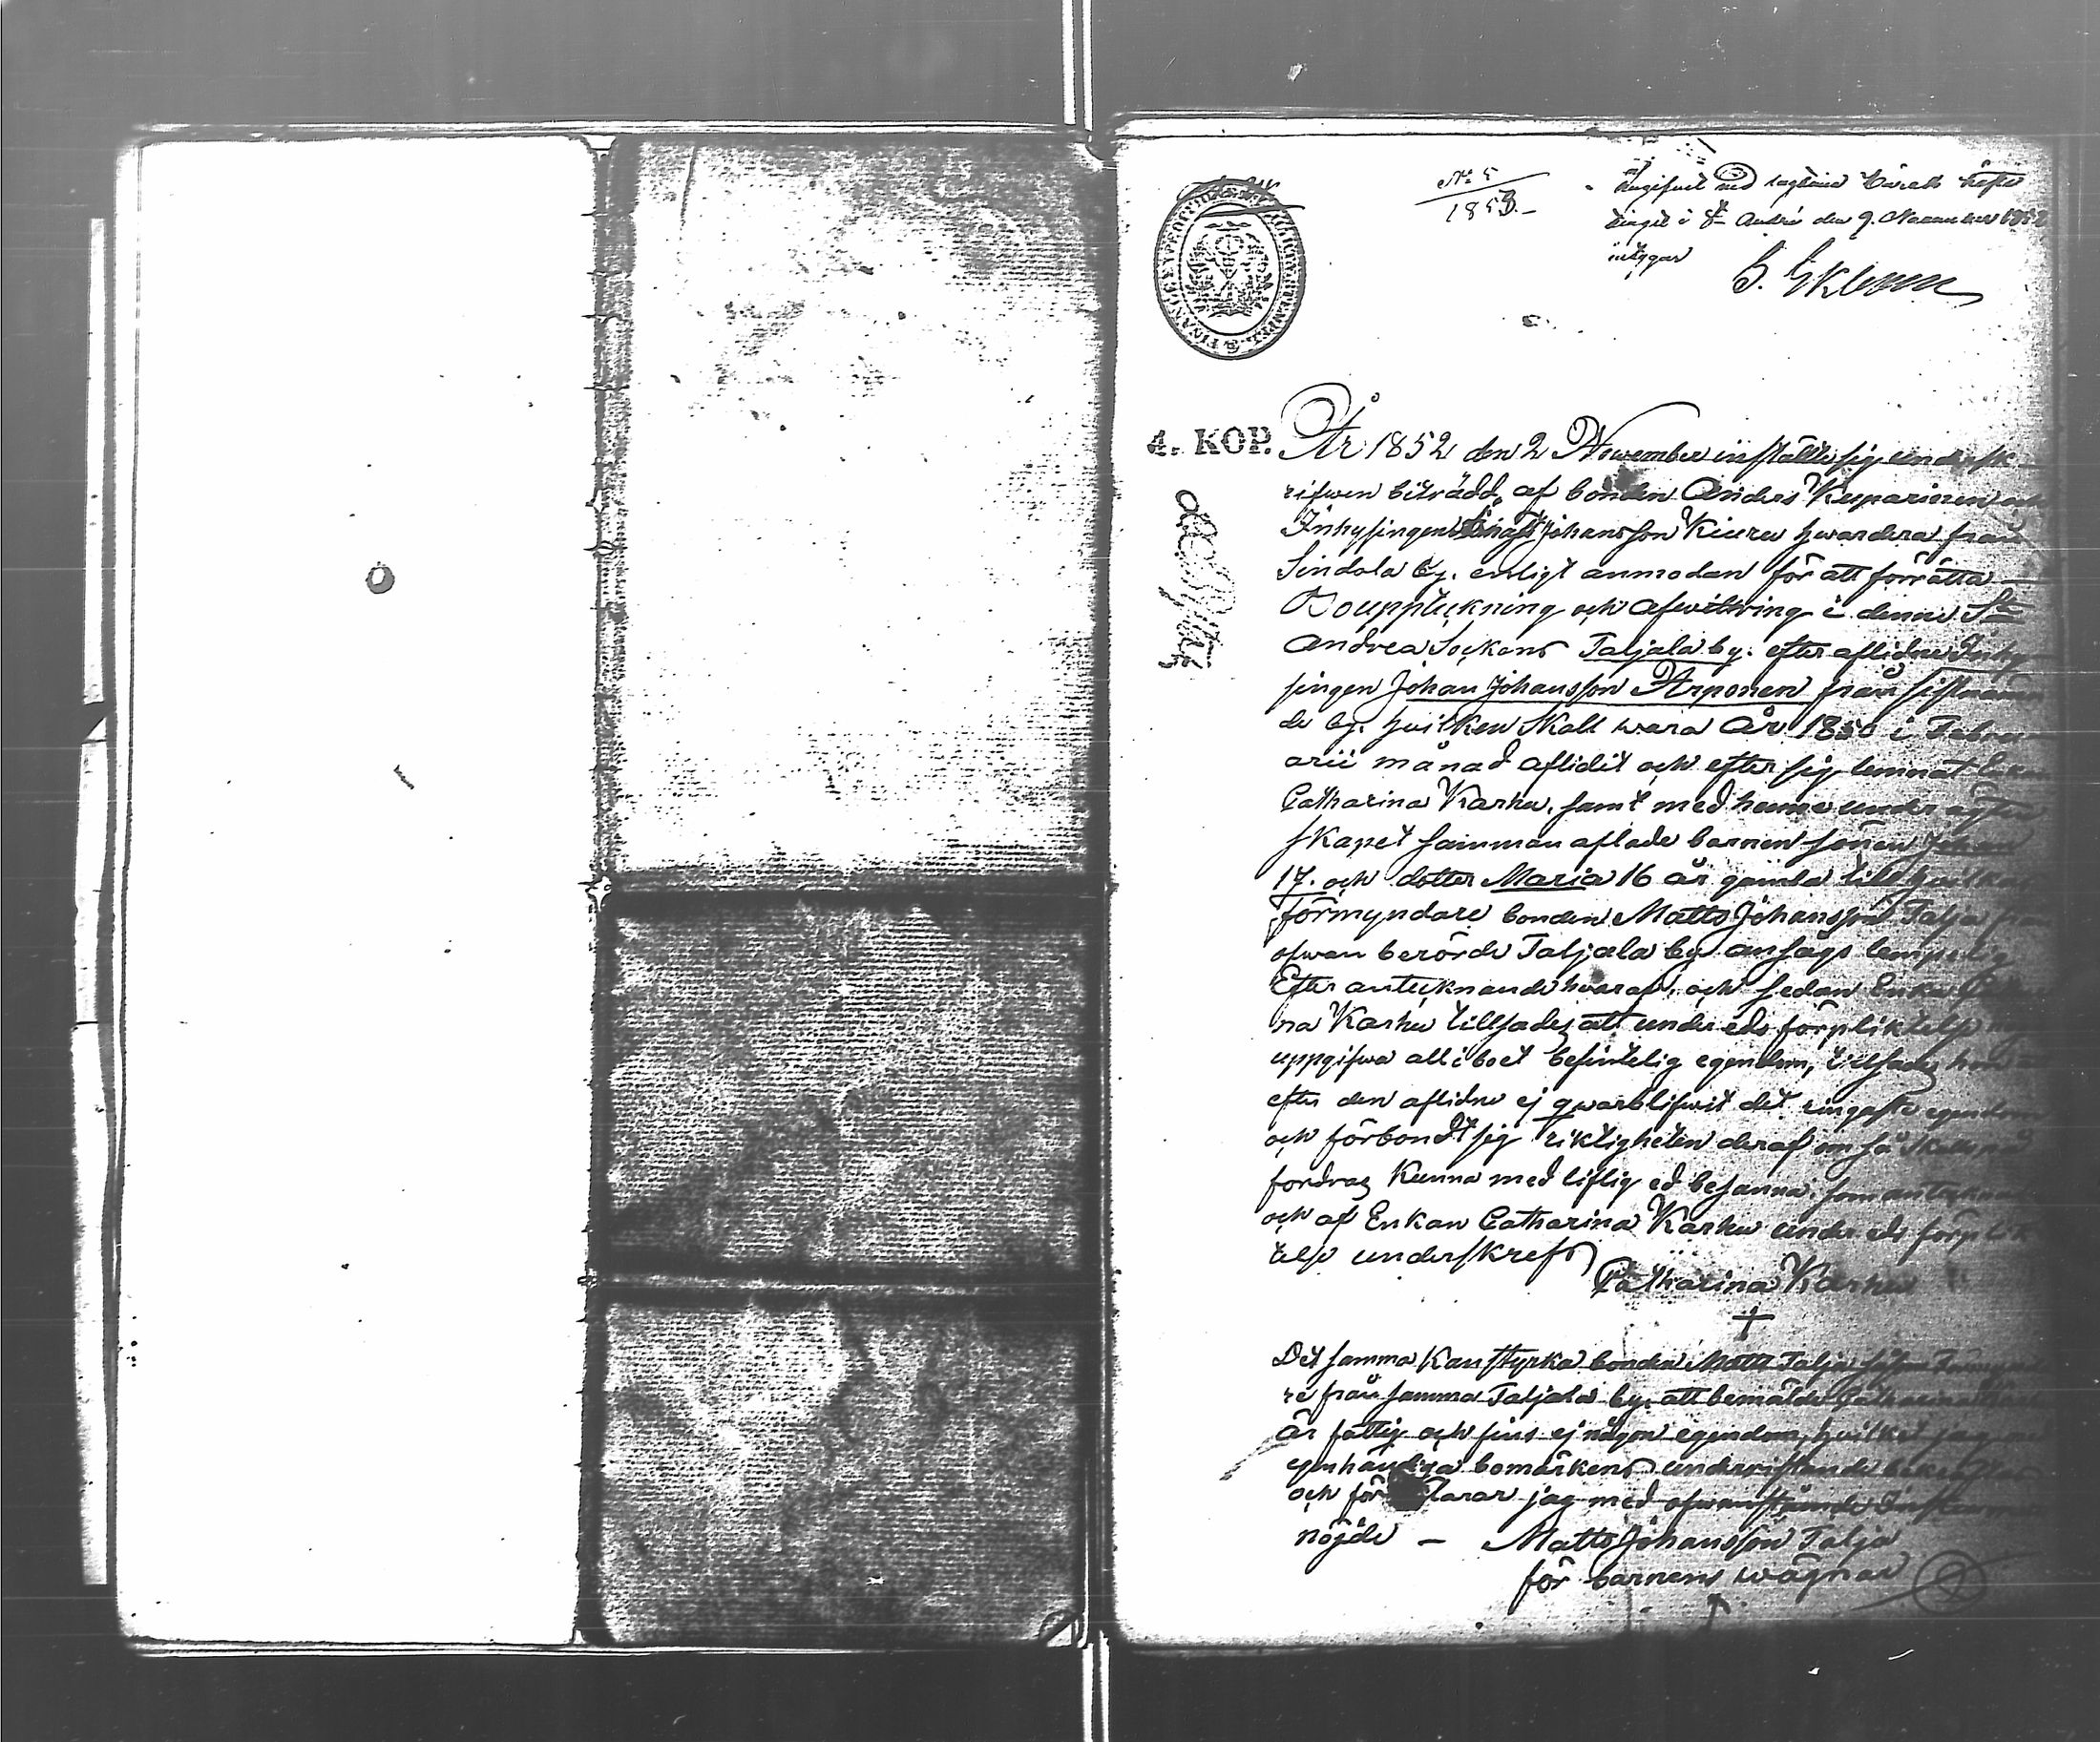 No 5
1853.
Ingifvit vid lagtima Härads Ting
tinget i St Andrè den 9. November 1852
intygar
4. KOP.
År 1852 den 2 November instälte sig undersk
rifwen biträdd, af bonden Anders Kuparinen och
Inhysingen Johansson Kiuru hwardera från
Sindola by. enligt anmodan för att förrätta
Bouppteckning och afwittring i denne St
Andrea Sockens Taljala by. efter aflidne Inhy
singen Johan Johansson Arponen från sistnämn
de by. hvilken skall wara År 1850 i Febru
arii månad aflidit och efter sig lemnat Enkan
Catharina Karhu, samt med henne under äkten
skapet samman aflade barnen sonen Johan
17. och dotter Maria 16 år gamla till hvilkas
förmyndare bonden Matts Johansson Talja från
ofwan berörde Taljala by ansågs lempelig
Efter antecknande hvaraf, och sedan Enkan Cathari
na Karhu tillsades att under eds förpliktelse
uppgifwa all i boet befintelig egendom, tillsades
efter den aflidne ej qwarblifwit det ringaste egendom
och förbondt sig riktigheten deraf om så skall på
fordras kunna med liflig ed besanna, som antecknas
och af Enkan Catharina Karhu under eds förplik
telse underskrefs
Catharina Karhu
Det samma kan styrka bonden Matts Talja såsom
re från samma Taljala by. att bemälde Catharina
är fattig och fins ej någon egendom, hvilket jag med
egenhändiga bomärkens underristande
och för klarar jag med ofwanstående
nöjde — Matts Johansson Talja
för barnens wägnar